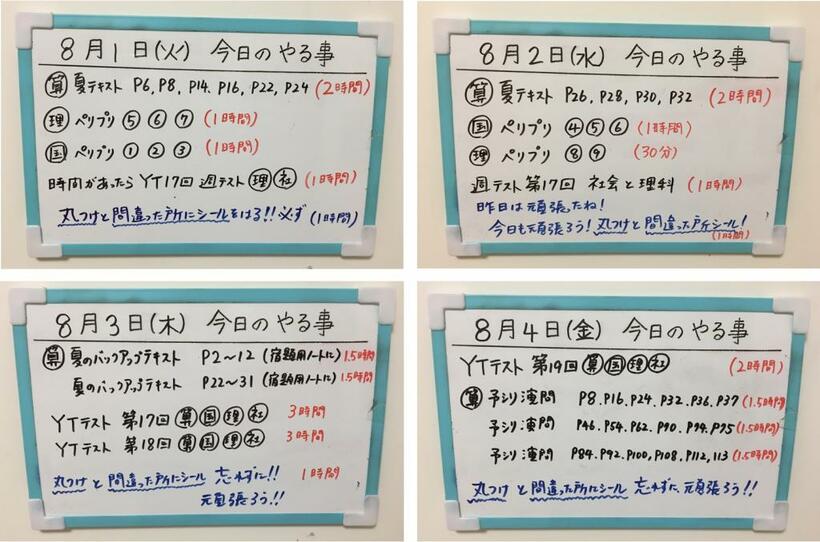 8月1日(火) 今日のやる事
算 夏テキスト P6, P8, P14, P16, P22, P24 (2時間)
理 ペリプリ ⑤ ⑥ ⑦ (1時間)
国 ペリプリ ① ② ③ (1時間)
時間があったら YT17回 週テスト 理 社 (1時間)
丸つけと間違った所にシールをはる!! 必ず (1時間)
8月2日(水) 今日のやる事
算 夏テキスト P26, P28, P30, P32 (2時間)
国 ペリプリ ④ ⑤ ⑥ (1時間)
理 ペリプリ ⑧ ⑨ (30分)
週テスト 第17回 社会と理科 (1時間)
昨日は頑張ったね!
今日も頑張ろう! 丸つけと間違った所シール!
(1時間)
8月3日(木) 今日のやる事
算 夏のバックアップテキスト P2〜12 (宿題用ノートに) 1.5時間
夏のバックアップテキスト P22〜31 (宿題用ノートに) 1.5時間
YTテスト 第17回 算 国 理 社 3時間
YTテスト 第18回 算 国 理 社 3時間
丸つけと間違った所にシール 忘れずに!! 1時間
頑張ろう!!
8月4日(金) 今日のやる事
YTテスト 第19回 算 国 理 社 (2時間)
算 予シリ演問 P8. P16. P24. P32. P36. P37 (1.5時間)
予シリ演問 P46. P54. P62. P90. P74. P75 (1.5時間)
予シリ演問 P84. P92. P100. P108. P112, 113 (1.5時間)
丸つけと間違った所にシール 忘れずに、頑張ろう!!